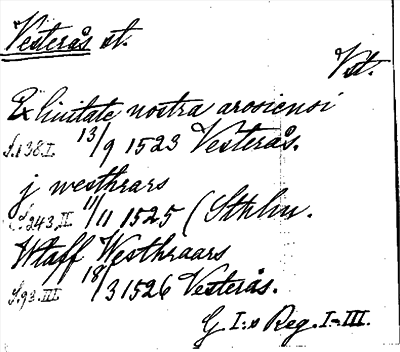 Vesterås st.
Vst.
Ex livitate nostra arosiensi
S.138.I. 13/9 1523 Vesterås.
j westhrars
S.243.II 11/11 1525 (Sthlm.
Wtaff Westhraars
S.93.III. 18/3 1526 Vesterås.
G. I:s Reg. I-III.